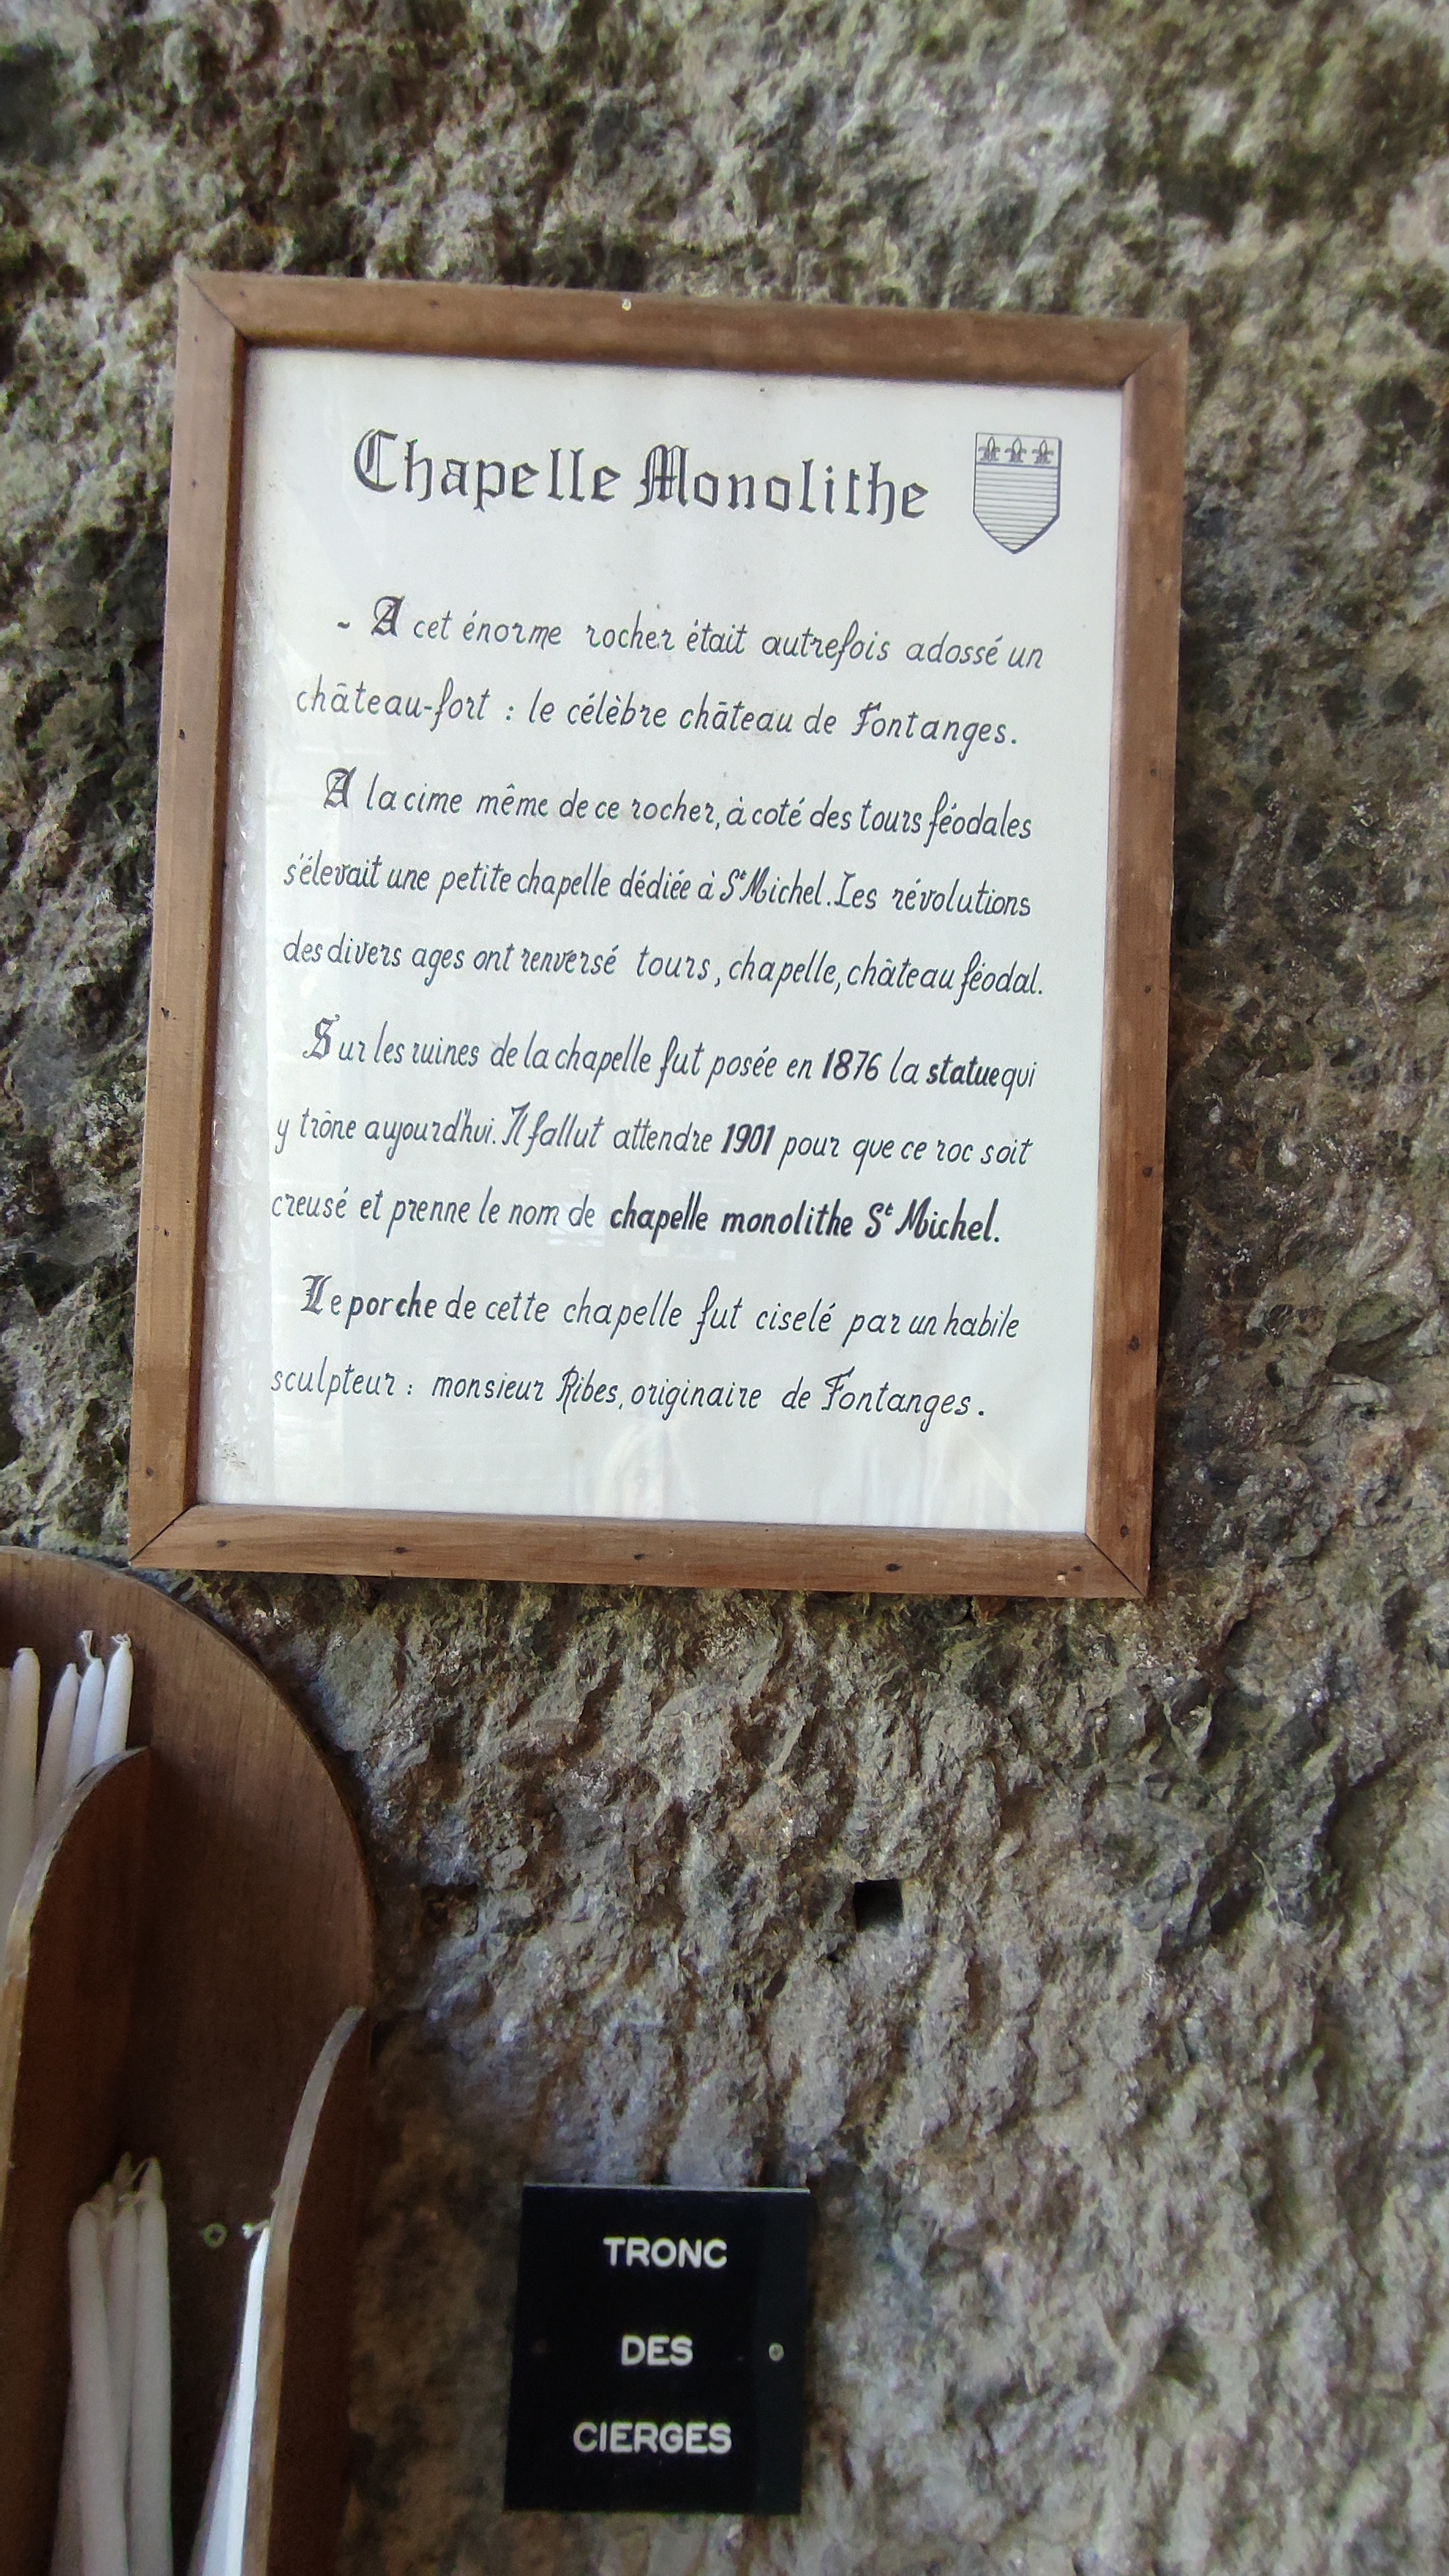 Chapelle Monolithe
- A cet énorme rocher était autrefois adossé un
château-fort : le célèbre château de Fontanges.
A la cime même de ce rocher, à coté des tours féodales
s'élevait une petite chapelle dédiée à St Michel. Les révolutions
des divers ages ont renversé tours, chapelle, château féodal.
Sur les ruines de la chapelle fut posée en 1876 la statue qui
y trône aujourd'hui. Il fallut attendre 1901 pour que ce roc soit
creusé et prenne le nom de chapelle monolithe St Michel.
Le porche de cette chapelle fut ciselé par un habile
sculpteur : monsieur Ribes, originaire de Fontanges.
TRONC
DES
CIERGES